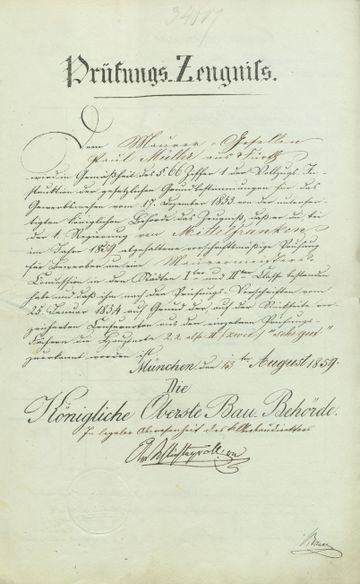 Prüfungs-Zeugniss.
Dem Maurer-Gesellen
Paul Müller aus Fürth
wird in Gemäßheit des § 66 Ziffer 1 der Vollzugs-In-
struktion der gesetzlichen Grundbestimmungen für das
Gewerbswesen vom 17. Dezember 1853 von der unter-
fertigten königlichen Behörde das Zeugniß, daß er die bei
der k. Regierung von Mittelfranken
im Jahre 1859 abgehaltene vorschriftsmäßige Prüfung
für Bewerber um eine Maurermeisters
Concession in den Städten I ter und II ter Classe bestanden
habe und daß ihm nach den Prüfungs-Vorschriften vom
25. Januar 1854 auf Grund der auf der Rückseite ver-
zeichneten Censurnoten aus den einzelnen Prüfungs-
Fächern die Hauptnote "sehr gut"
zuerkannt worden ist.
München den 13 ten August 1859.
Die
Königliche Oberste Bau-Behörde.
In legaler Abwesenheit des